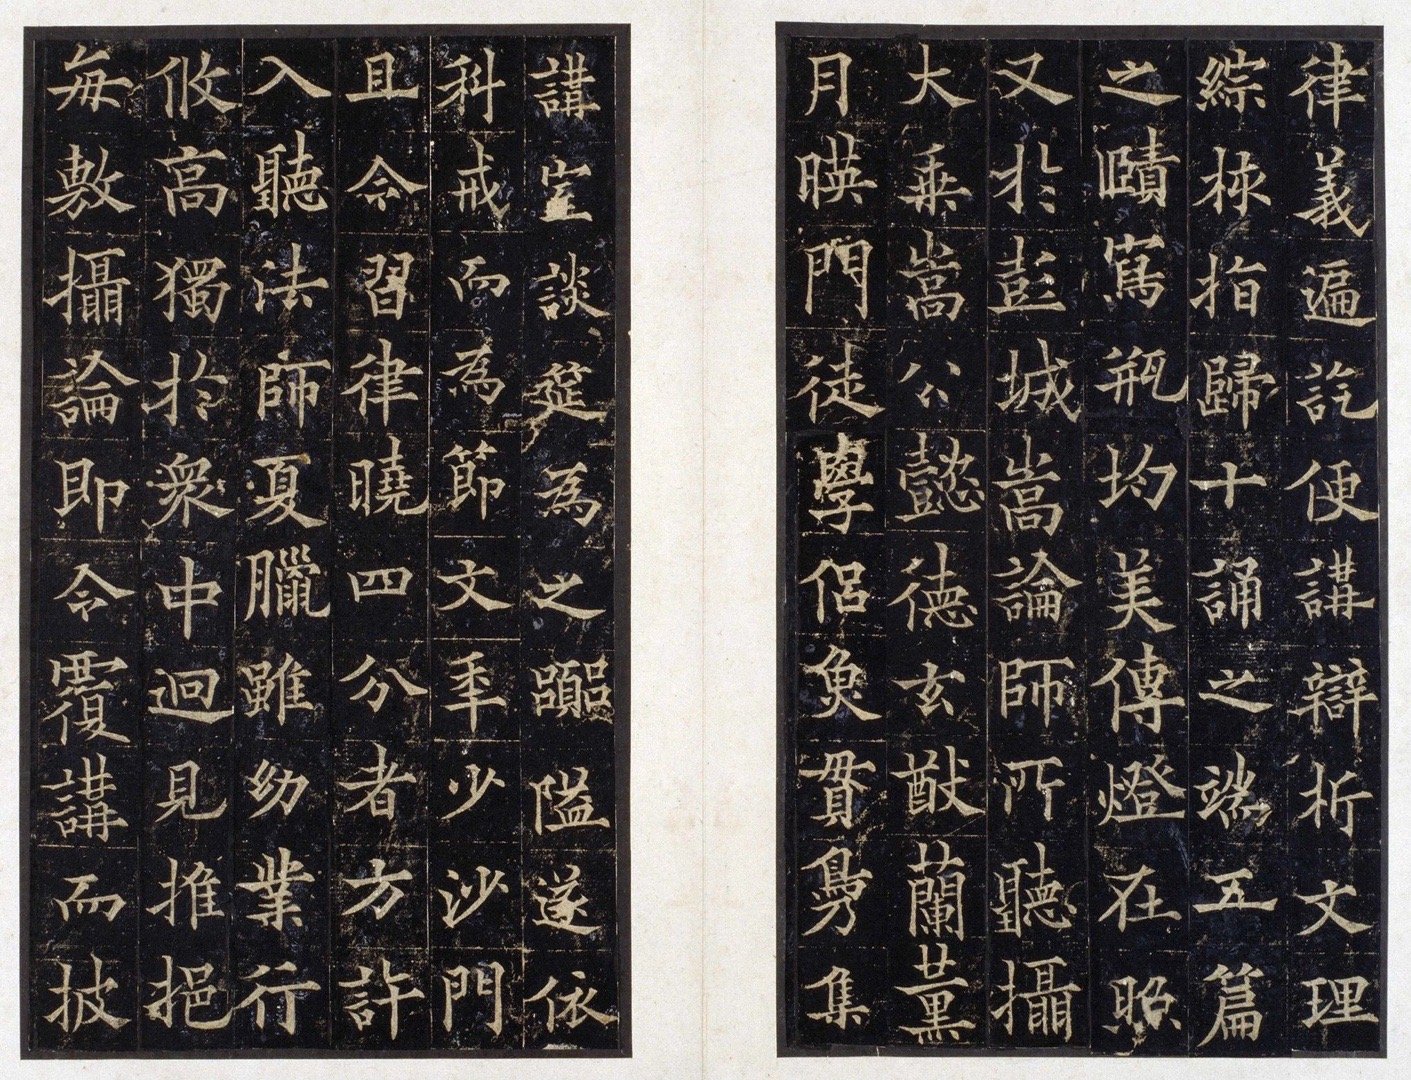 律義遍訖便講辯析文理
綜栐指歸十誦之端五篇
之賾寫瓶均美傳燈在照
又於彭城嵩論師所聽攝
大乗嵩公懿德玄猷蘭薫
月暎門徒學侶奐貫鳧集
講堂談筵為之嚻隘遂依
科戒而為節文年少沙門
且令習律曉四分者方許
入聽法師夏臘雖幼業行
攸高獨於衆中迥見推挹
毎敷攝論即令覆講而披